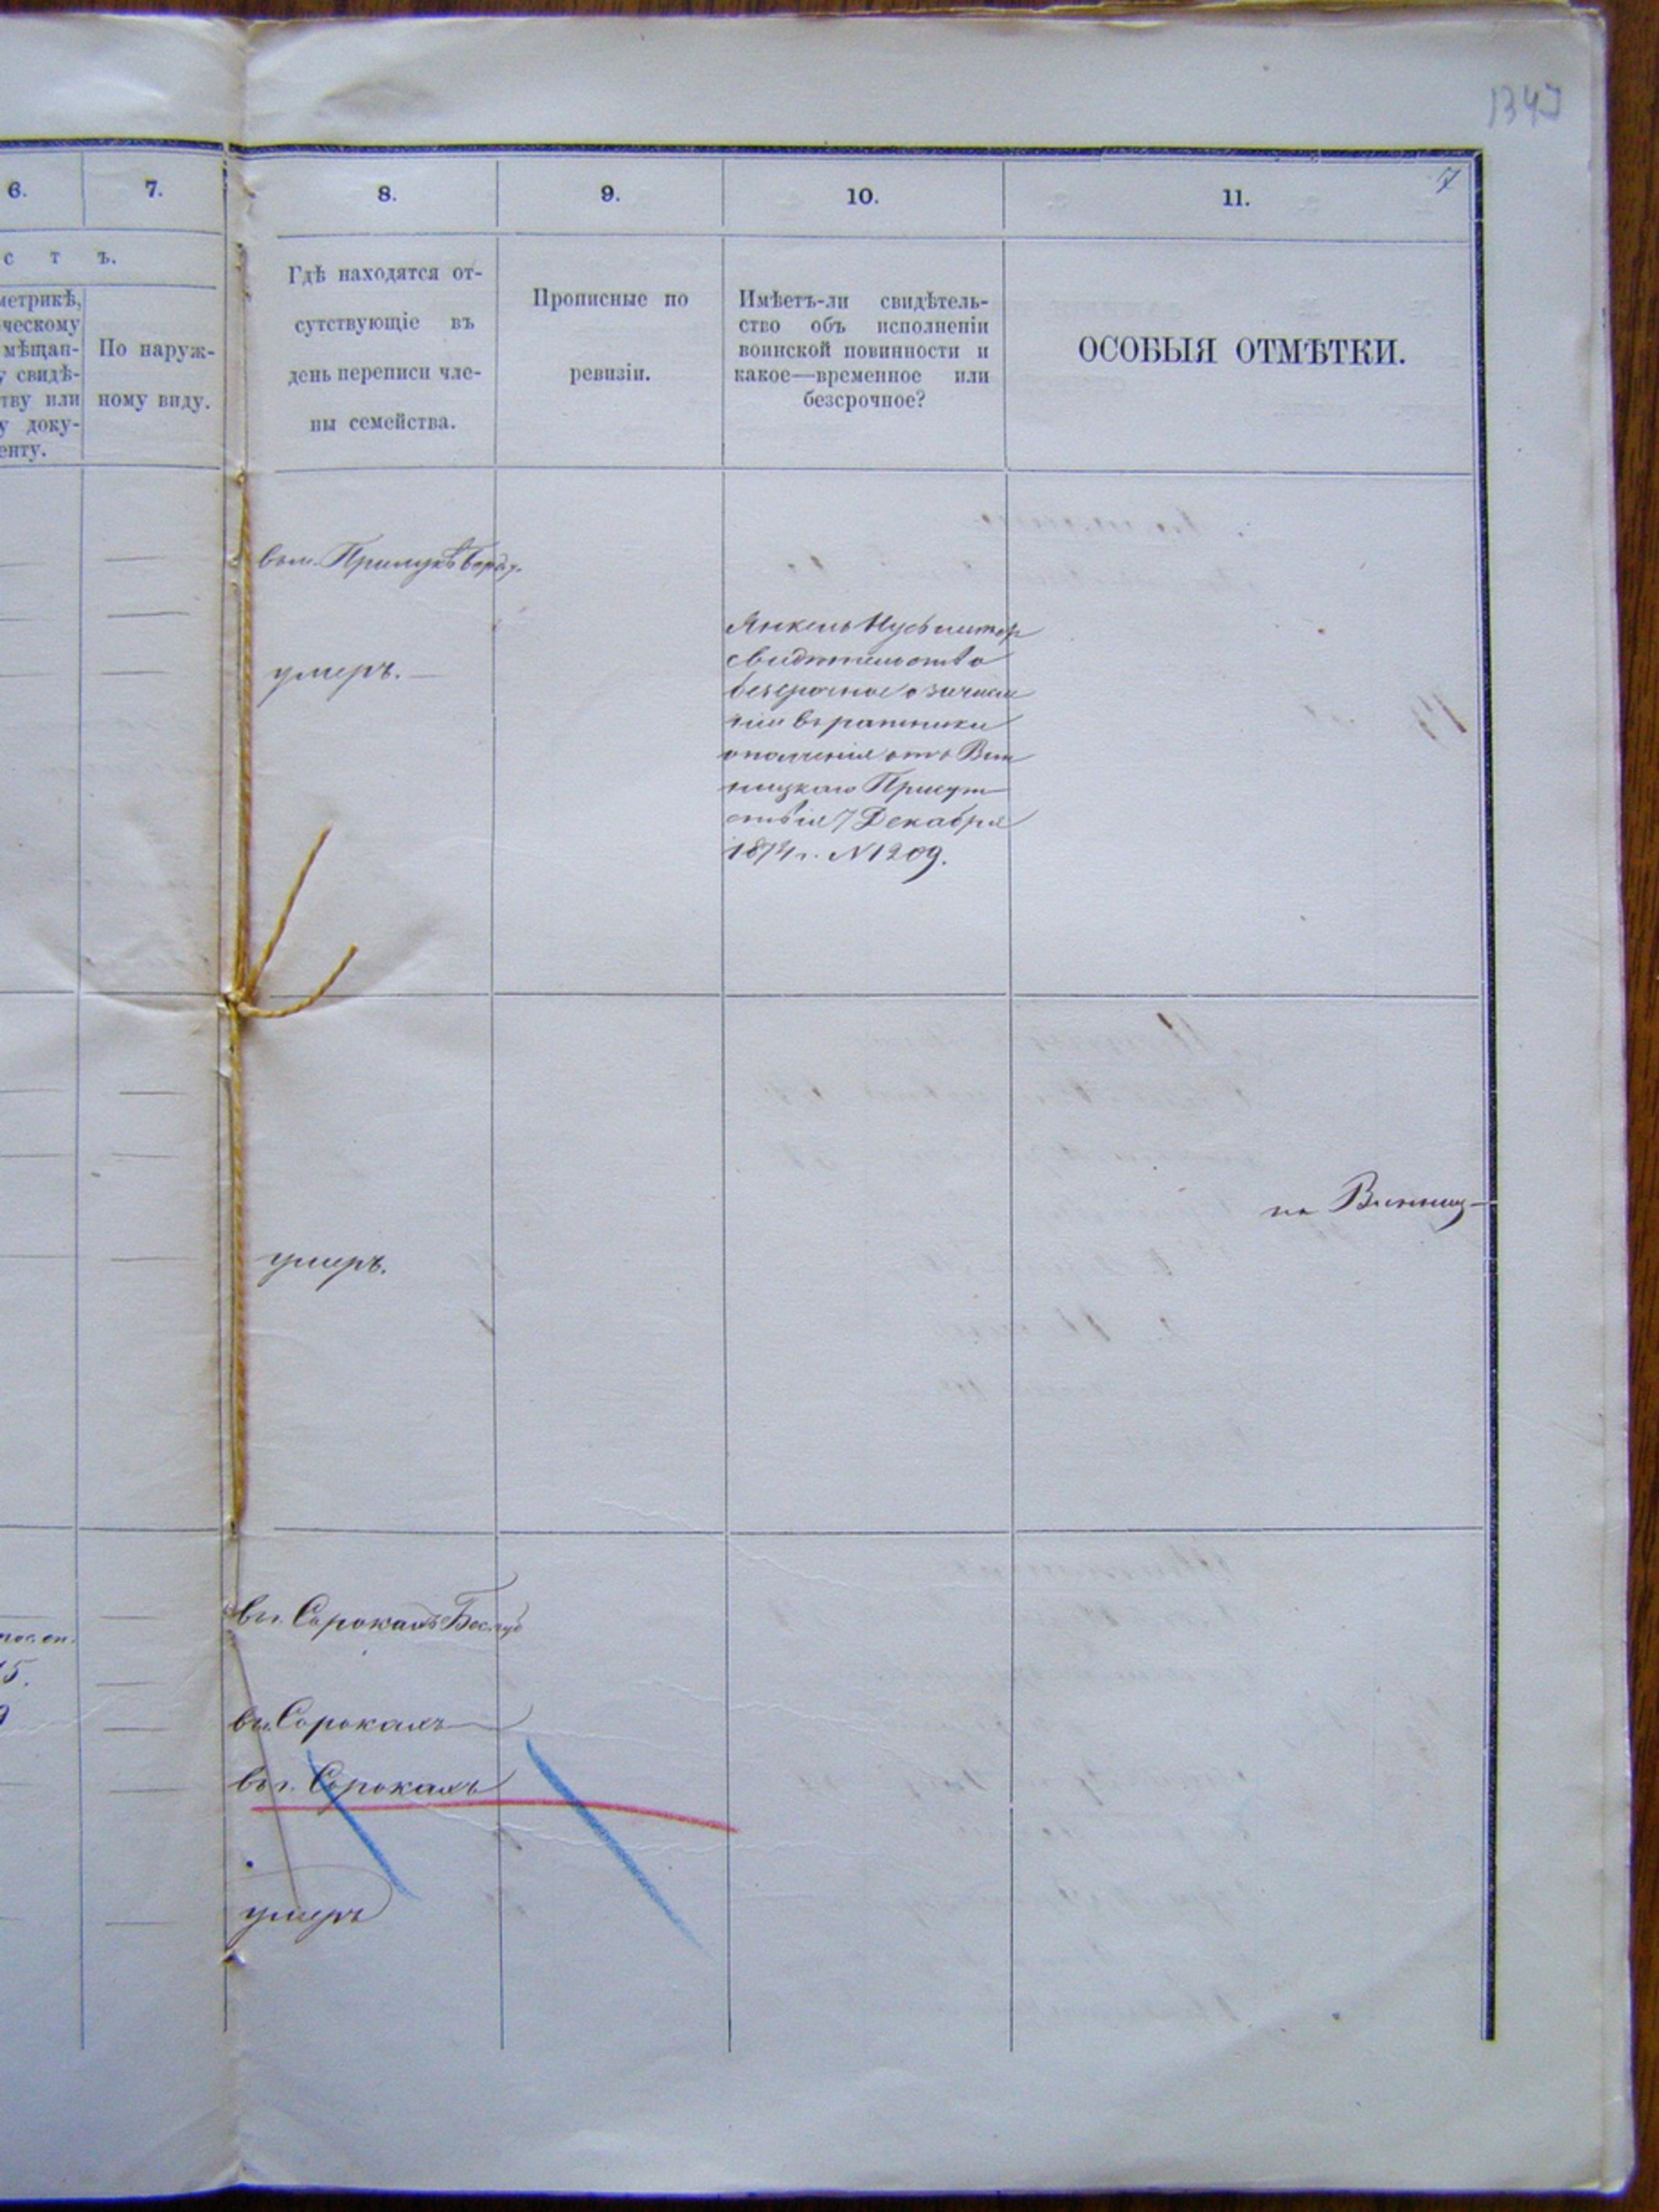 1347
17
6.
7.
8.
9.
10.
11.
с т ъ.
метрикѣ,
ческому
мѣщан-
у свидѣ-
тву или
у доку-
енту.
По наруж-
ному виду.
Гдѣ находятся от-
сутствующіе въ
день переписи чле-
ны семейства.
Прописные по
ревизіи.
Имѣетъ-ли свидѣтель-
ство объ исполненіи
воинской повинности и
какое—временное или
безсрочное?
ОСОБЫЯ ОТМѢТКИ.
въ м. Прилукѣ
умеръ.—
Янкель
свидѣтельство
безсрочное о зачисле
ніи въ ратники
ополченія отъ Вин
ницкаго Присут
ствія 7 Декабря
1874 г. № 1209.
на Винниц
умеръ.
въ г. Сорокахъ
15.
въ г. Сорокахъ
въ г. Сорокахъ
умеръ